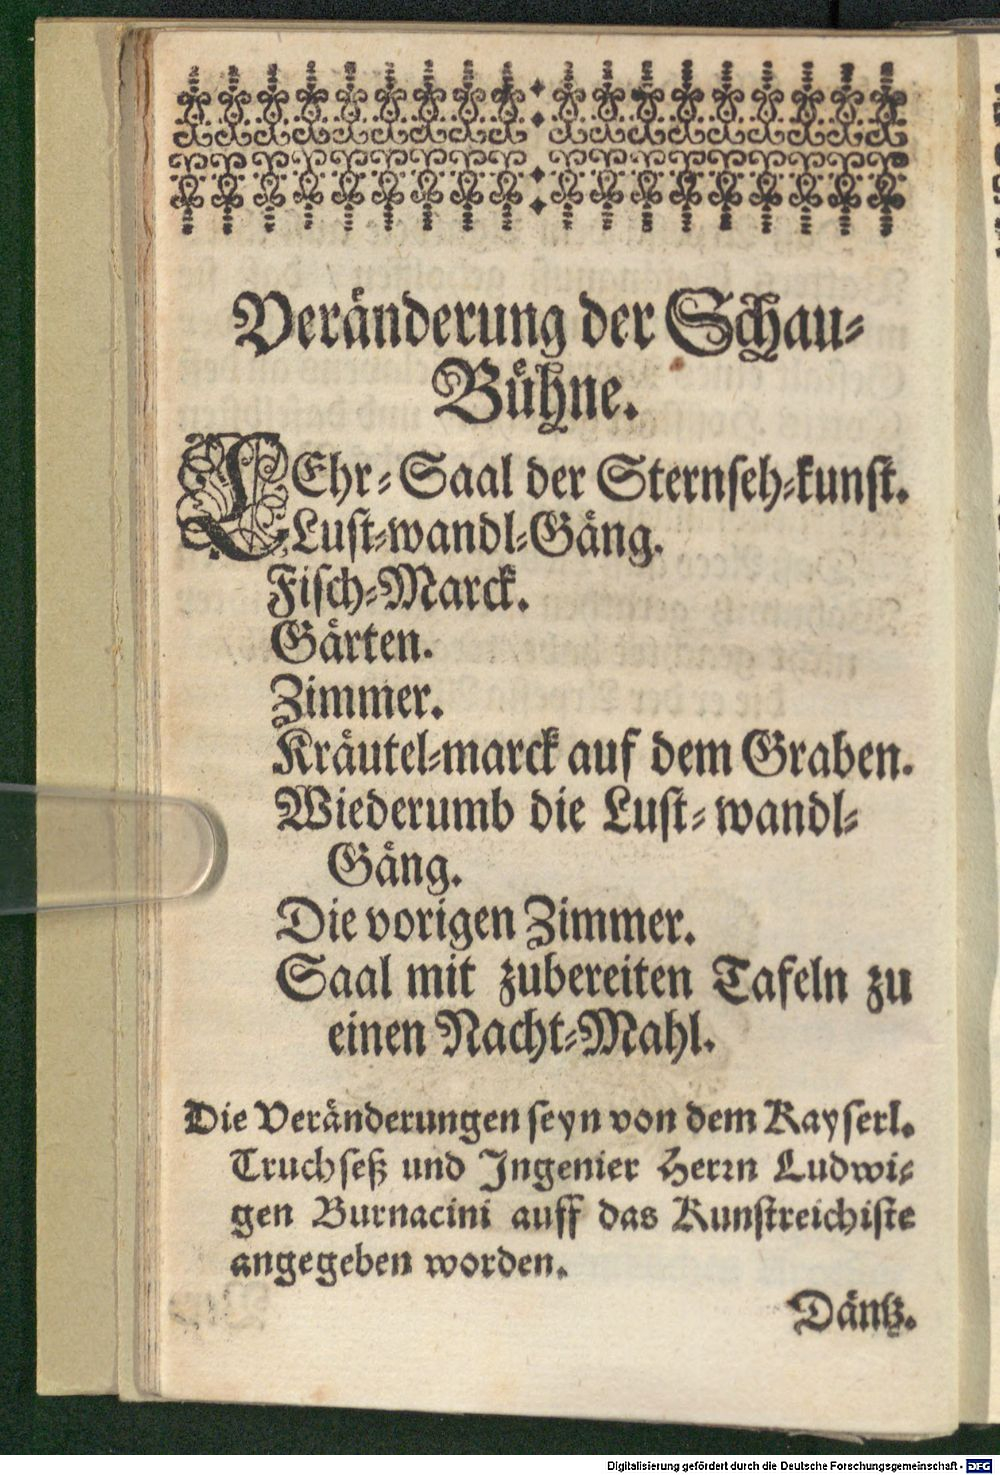 Veränderung der Schau-
Bühne.
LEhr-Saal der Sternseh-kunst.
Lust-wandl-Gäng.
Fisch-Marck.
Gärten.
Zimmer.
Kräutel-marck auf dem Graben.
Wiederumb die Lust-wandl-
Gäng.
Die vorigen Zimmer.
Saal mit zubereiten Tafeln zu
einen Nacht-Mahl.
Die Veränderungen seyn von dem Kayserl.
Truchseß und Ingenier Herrn Ludwi-
gen Burnacini auff das Kunstreichiste
angegeben worden.
Däntz.
Digitalisierung gefördert durch die Deutsche Forschungsgemeinschaft - DFG